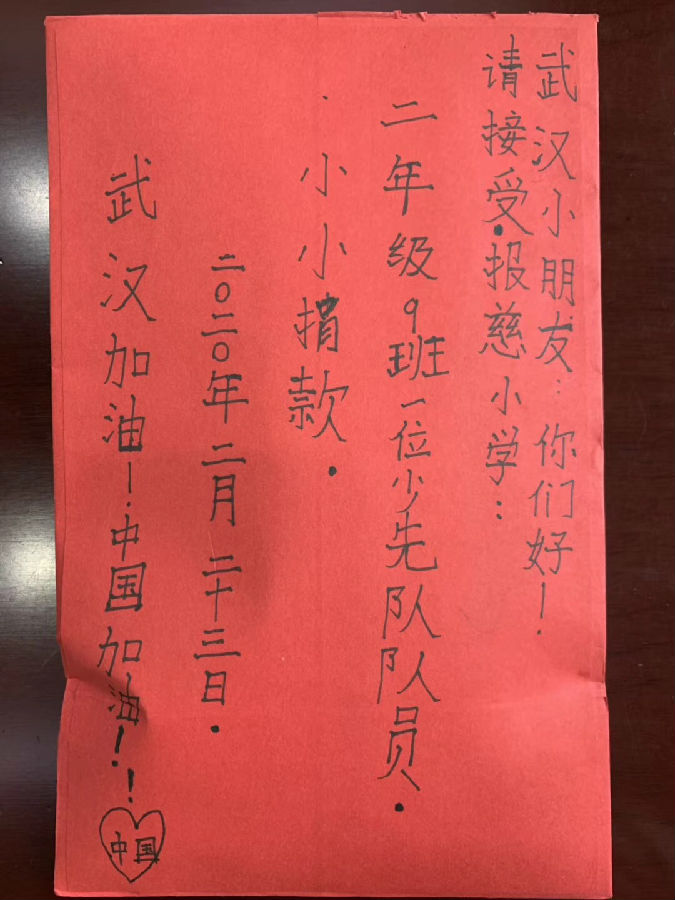 武汉小朋友:你们好!
请接受.报慈小学:
二年级9班一位少先队队员.
小小捐款.
二〇二〇年二月二十三日.
武汉加油!.中国加油!!
中国